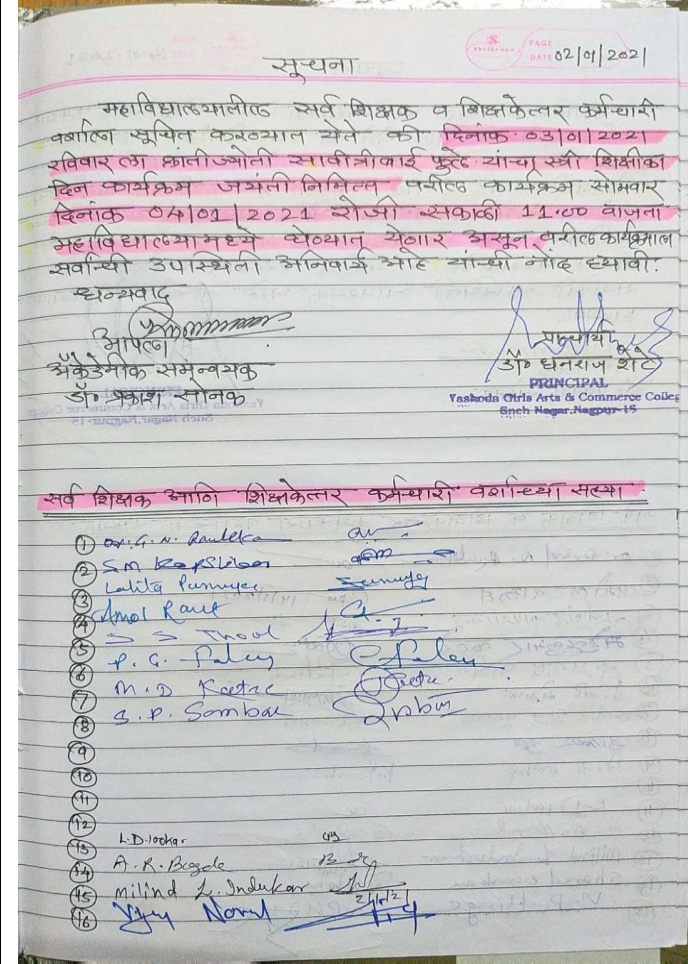 PAGE
DATE 02/01/2021
सूचना
महाविद्यालयातील सर्व शिक्षक व शिक्षकेत्तर कर्मचारी
वर्गाला सूचित करण्यात येते की दिनांक 03/01/2021
रविवार ला क्रांतीज्योती सावीत्रीबाई फुले यांचा स्त्री शिक्षीका
दिन कार्यक्रम जयंती निमित्त वरील कार्यक्रम सोमवार
दिनांक 04/01/2021 रोजी सकाळी 11.00 वाजता
महाविद्यालयामध्ये घेण्यात येणार असून वरील कार्यक्रमाला
सर्वांची उपास्थिती अनिवार्य आहे यांची नोंद घ्यावी.
धन्यवाद
आपला
अ‍ॅकेडेमीक समन्वयक
डॉ. प्रकाश सोनक
प्राचार्य
डॉ. धनराज शेटे
PRINCIPAL
Yashoda Girls Arts & Commerce Colleg
Sneh Nagar, Nagpur-15
सर्व शिक्षक आणि शिक्षकेत्तर कर्मचारी वर्गाच्या सह्या
① Dr. G. N.
② S M
③ Lalita
④ Amol Raut
⑤ S S Thool
⑥ P. G.
⑦ M. D
⑧ S. P. Sambar
⑨
⑩
⑪
⑫
⑬ L.D.
⑭ A. R.
⑮ Milind L. Indukar
⑯ Vijay